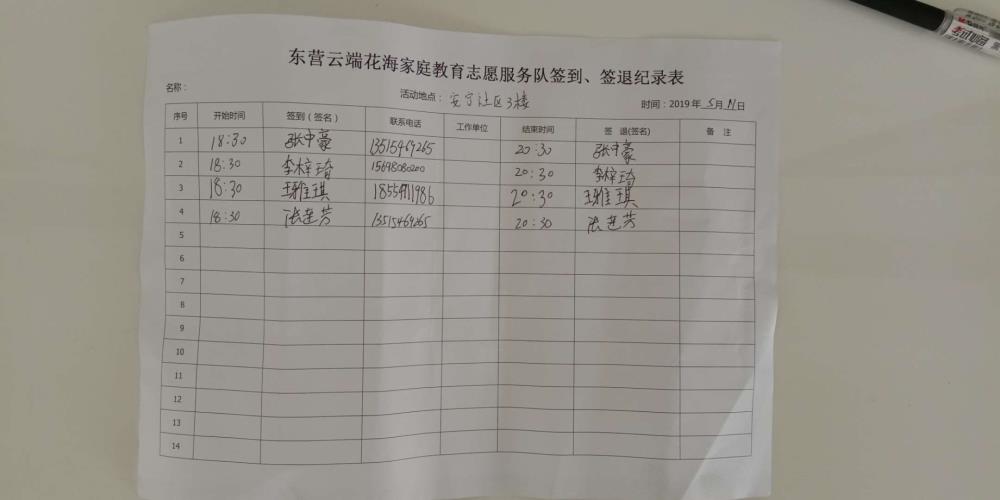 东营云端花海家庭教育志愿服务队签到、签退纪录表
名称：
活动地点：安宁社区3楼
时间：2019年5月11日
序号 开始时间 签到（签名） 联系电话 工作单位 结束时间 签 退(签名) 备 注
1 18:30 张中豪 13515469265 20:30 张中豪
2 18:30 李梓琦 15698080200 20:30 李梓琦
3 18:30 王雅琪 18554711986 20:30 王雅琪
4 18:30 张莲芳 13515469265 20:30 张莲芳
5
6
7
8
9
10
11
12
13
14